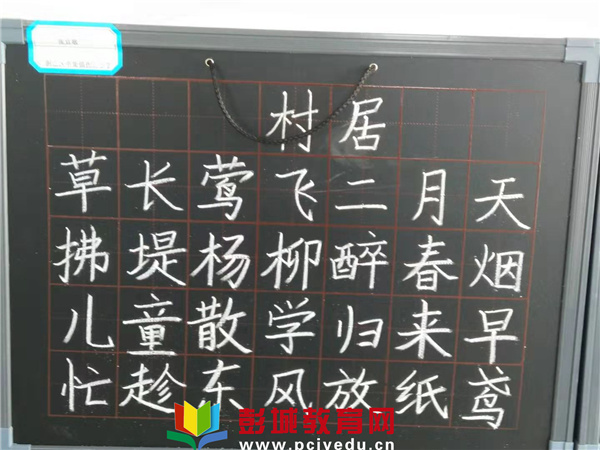 村居
草长莺飞二月天
拂堤杨柳醉春烟
儿童散学归来早
忙趁东风放纸鸢
彭城教育网
www.pcjyedu.cn